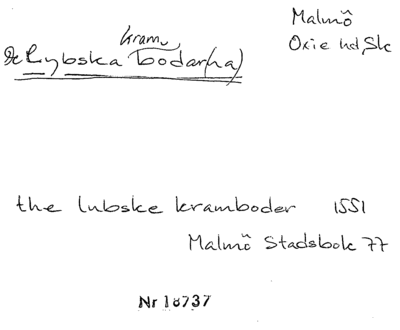 Malmö
Oxie hd Sk
kram
De Lybska bodar(na)
the lubske kramboder 1551
Malmö Stadsbok 77
Nr 18737